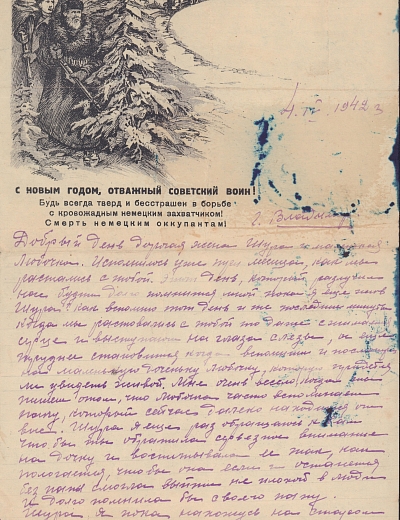 4. IV 1942 г
С НОВЫМ ГОДОМ, ОТВАЖНЫЙ СОВЕТСКИЙ ВОИН!
Будь всегда тверд и бесстрашен в борьбе
с кровожадным немецким захватчиком!
Смерть немецким оккупантам!
Добрый день дорогая жена Шура и
Любочка. Исполнилось уже три месяца как мы
растались с тобой. день, который разлучил
нас будет помнится мной пока я еще жив
Шура как вспомню тот день и последнии минуты
когда мы расставались с тобой то даже
серце и выступают на глаза слезы, а еще
труднее становится когда вспомниш и
маленькую доченьку Любочку, которую придется
ли увидеть живой. Мне очень весело, когда
пишеш о том, что Любочка часто вспоминает
папу, который сейчас далеко находится от
вас! Шура я еще раз обращаюсь к
что бы ты обратила серьезное внимание
на дочку и воспитывала ее так, как
полагается, что бы она если и останется
без папы смогла выйти не плохой в люди
и долго помнила бы своего папу.
Шура я пока нахожусь на старом